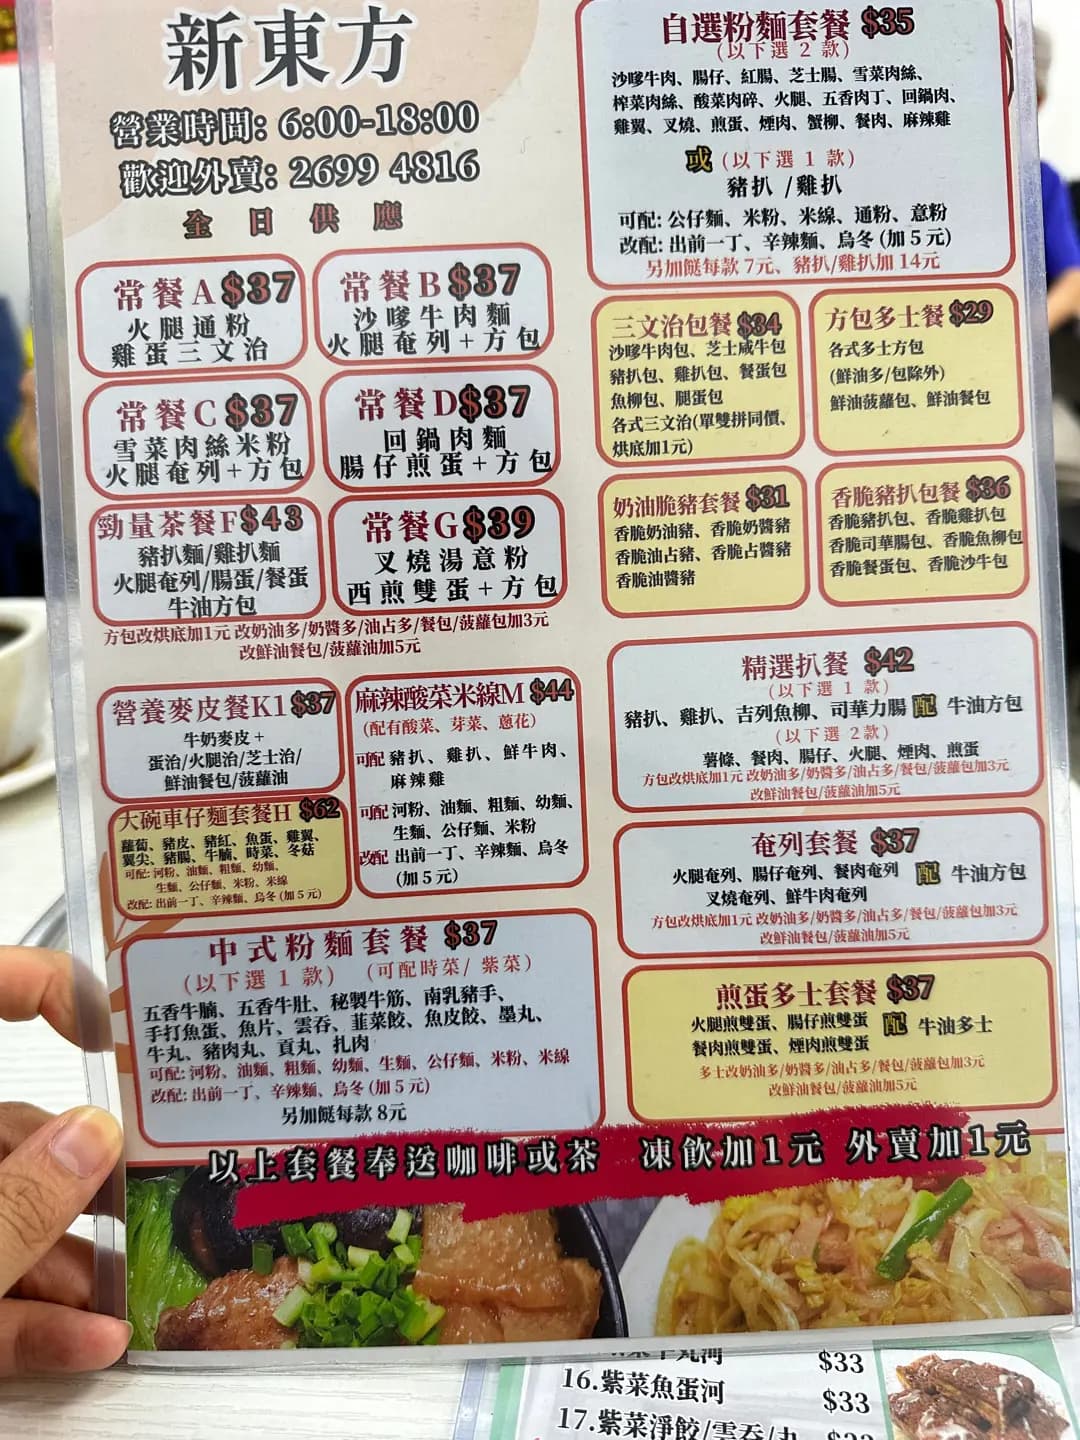 新東方
營業時間: 6:00-18:00
歡迎外賣: 2699 4816
全日供應
常餐A $37
火腿通粉
雞蛋三文治
常餐B $37
沙嗲牛肉麵
火腿奄列+方包
常餐C $37
雪菜肉絲米粉
火腿奄列+方包
常餐D $37
回鍋肉麵
腸仔煎蛋+方包
勁量茶餐F $43
豬扒麵/雞扒麵
火腿奄列/腸蛋/餐蛋
牛油方包
常餐G $39
叉燒湯意粉
西煎雙蛋+方包
方包改烘底加1元 改奶油多/奶醬多/油占多/餐包/菠蘿包加3元
改鮮油餐包/菠蘿油加5元
營養麥皮餐K1 $37
牛奶麥皮+
蛋治/火腿治/芝士治/
鮮油餐包/菠蘿油
大碗車仔麵套餐H $62
蘿蔔、豬皮、豬紅、魚蛋、雞翼、
翼尖、豬腸、牛腩、時菜、冬菇
可配: 河粉、油麵、粗麵、幼麵、
生麵、公仔麵、米粉、米線
改配: 出前一丁、辛辣麵、烏冬 (加 5 元)
麻辣酸菜米線M $44
(配有酸菜、芽菜、蔥花)
可配 豬扒、雞扒、鮮牛肉、
麻辣雞
可配 河粉、油麵、粗麵、幼麵、
生麵、公仔麵、米粉
改配 出前一丁、辛辣麵、烏冬
(加 5 元)
中式粉麵套餐 $37
(以下選 1 款) (可配時菜/ 紫菜)
五香牛腩、五香牛肚、秘製牛筋、南乳豬手、
手打魚蛋、魚片、雲吞、韮菜餃、魚皮餃、墨丸、
牛丸、豬肉丸、貢丸、扎肉
可配: 河粉、油麵、粗麵、幼麵、生麵、公仔麵、米粉、米線
改配: 出前一丁、辛辣麵、烏冬 (加 5 元)
另加餸每款 8元
自選粉麵套餐 $35
(以下選 2 款)
沙嗲牛肉、腸仔、紅腸、芝士腸、雪菜肉絲、
榨菜肉絲、酸菜肉碎、火腿、五香肉丁、回鍋肉、
雞翼、叉燒、煎蛋、煙肉、蟹柳、餐肉、麻辣雞
或 (以下選 1 款)
豬扒 /雞扒
可配: 公仔麵、米粉、米線、通粉、意粉
改配: 出前一丁、辛辣麵、烏冬 (加 5 元)
另加餸每款 7元、豬扒/雞扒加 14元
三文治包餐 $34
沙嗲牛肉包、芝士咸牛包
豬扒包、雞扒包、餐蛋包
魚柳包、腿蛋包
各式三文治(單雙拼同價、
烘底加1元)
方包多士餐 $29
各式多士方包
(鮮油多/包除外)
鮮油菠蘿包、鮮油餐包
奶油脆豬套餐 $31
香脆奶油豬、香脆奶醬豬
香脆油占豬、香脆占醬豬
香脆油醬豬
香脆豬扒包餐 $36
香脆豬扒包、香脆雞扒包
香脆司華腸包、香脆魚柳包
香脆餐蛋包、香脆沙牛包
精選扒餐 $42
(以下選 1 款)
豬扒、雞扒、吉列魚柳、司華力腸 配 牛油方包
(以下選 2款)
薯條、餐肉、腸仔、火腿、煙肉、煎蛋
方包改烘底加1元 改奶油多/奶醬多/油占多/餐包/菠蘿包加3元
改鮮油餐包/菠蘿油加5元
奄列套餐 $37
火腿奄列、腸仔奄列、餐肉奄列 配 牛油方包
叉燒奄列、鮮牛肉奄列
方包改烘底加1元 改奶油多/奶醬多/油占多/餐包/菠蘿包加3元
改鮮油餐包/菠蘿油加5元
煎蛋多士套餐 $37
火腿煎雙蛋、腸仔煎雙蛋 配 牛油多士
餐肉煎雙蛋、煙肉煎雙蛋
多士改奶油多/奶醬多/油占多/餐包/菠蘿包加3元
改鮮油餐包/菠蘿油加5元
以上套餐奉送咖啡或茶 凍飲加1元 外賣加1元
$33
16.紫菜魚蛋河 $33
17.紫菜淨餃/雲吞/丸